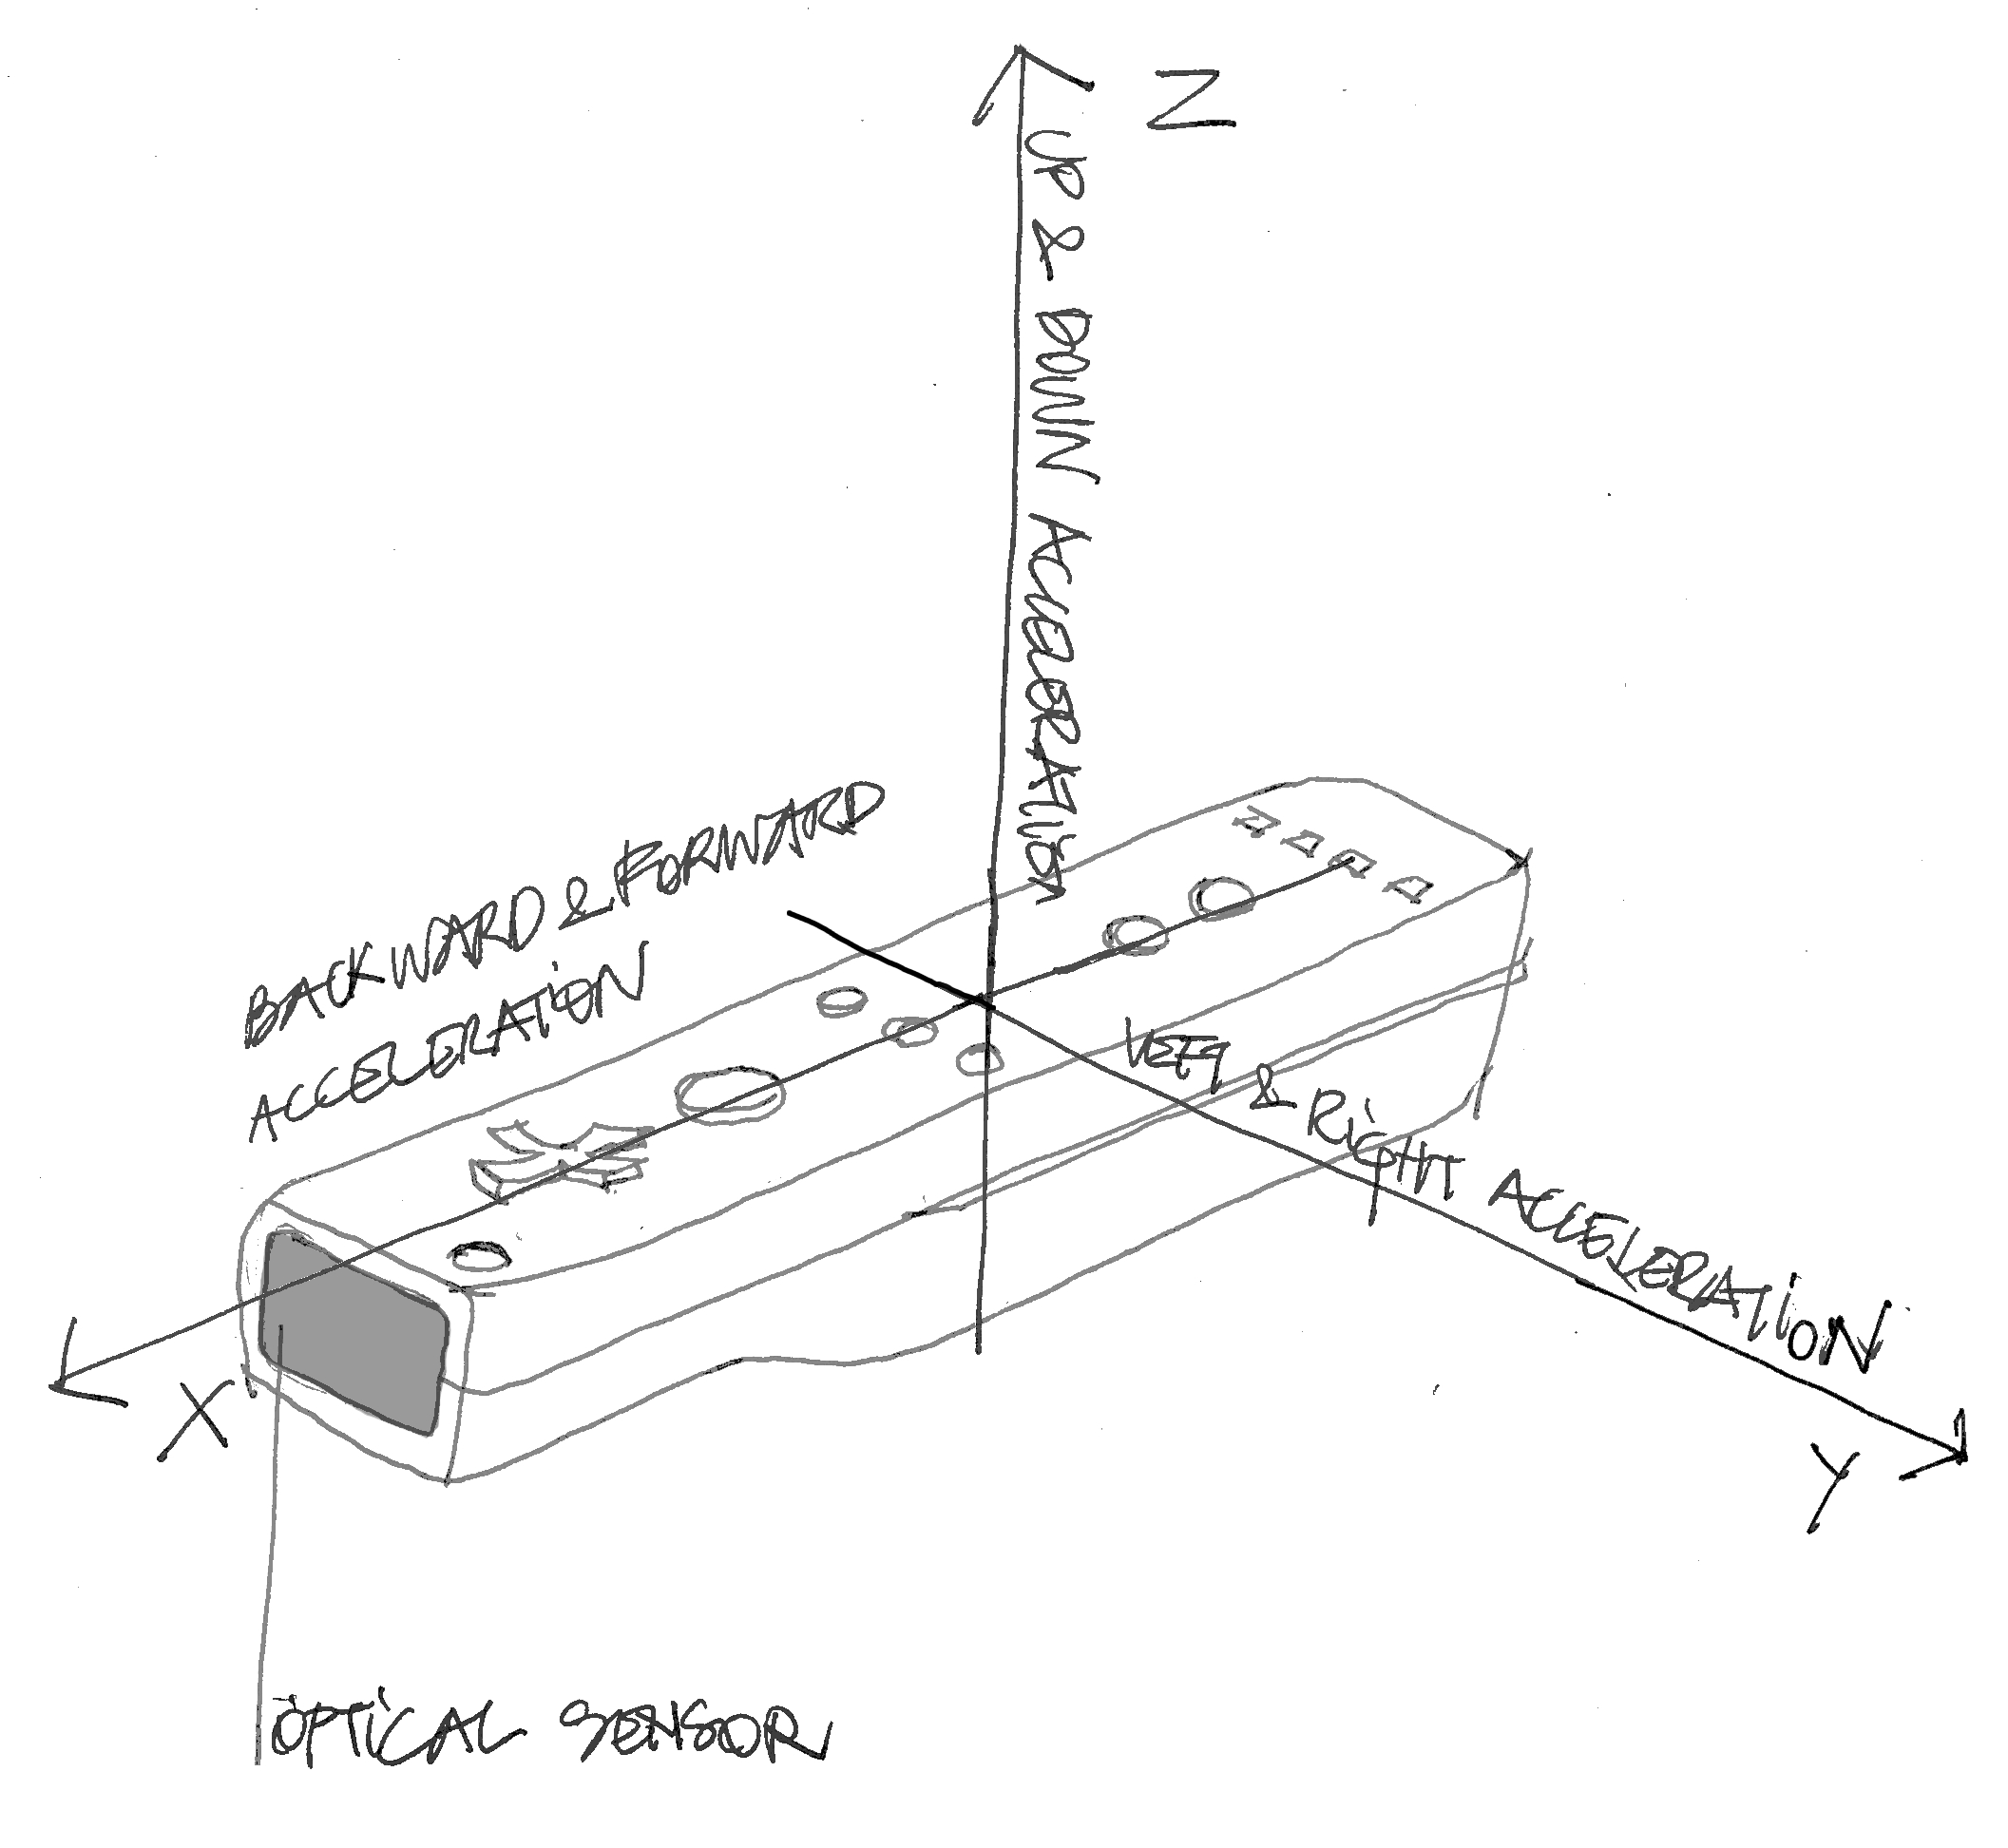 Z
UP & DOWN ACCELERATION
BACKWARD & FORWARD
ACCELERATION
LEFT & RiGHT ACCELERATiON
X
Y
OPTiCAL SENSOR